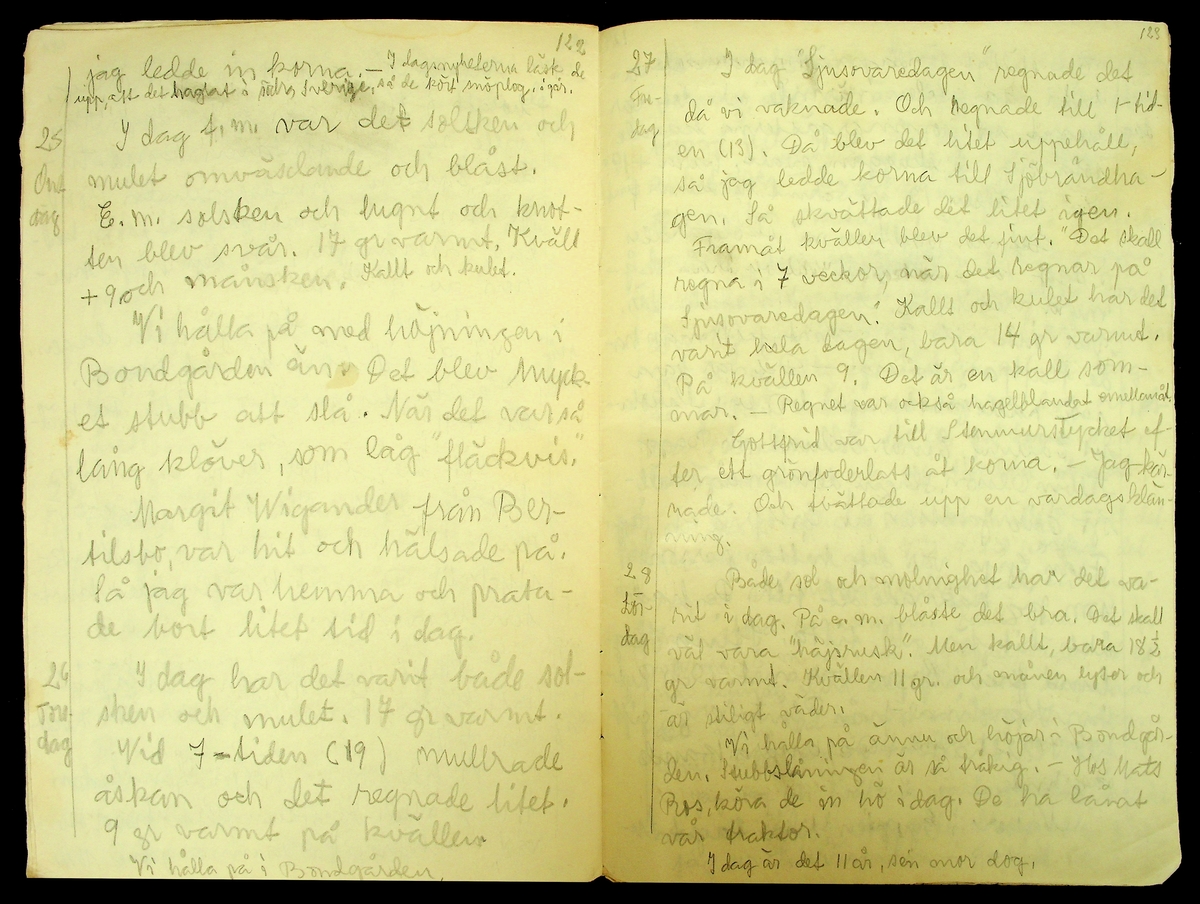 122
jag ledde in korna. — I dagnyheterna läste de
upp, att det haglat i södra Sverige, så de kört snöplog, i går.
25
Ons
dag
I dag f.m. var det solsken och
mulet omväxlande och blåst.
E.m. solsken och lugnt och knot-
ten blev svår. 17 gr varmt. Kväll
+9 och månsken. Kallt och kulet.
Vi hålla på med höjningen i
Bondgården än. Det blev myck-
et stubb att slå. När det var så
lång klöver, som låg "fläckvis."
Margit Wigander från Ber-
tilsbo, var hit och hälsade på.
Så jag var hemma och prata-
de bort litet tid i dag.
26
Tors-
dag
I dag har det varit både sol-
sken och mulet. 17 gr varmt.
Vid 7-tiden (19) mullrade
åskan och det regnade litet.
9 gr varmt på kvällen.
Vi hålla på i Bondgården.
123
27
Fre-
dag
I dag "Sjusovaredagen" regnade det
då vi vaknade. Och regnade till 1-tid-
en (13). Då blev det litet uppehåll,
så jag ledde korna till Sjöbråndha-
gen. Så skvättade det litet igen.
Framåt kvällen blev det fint. "Det skall
regna i 7 veckor, när det regnar på
Sjusovaredagen." Kallt och kulet har det
varit hela dagen, bara 14 gr varmt.
På kvällen 9. Det är en kall som-
mar. — Regnet var också hagelblandat emellanåt.
Gottfrid var till Stenmurstycket ef-
ter ett grönfoderlats åt korna. — Jag kär-
nade. Och tvättade upp en vardagsklän-
ning.
28
Lör-
dag
Både sol och molnighet har det va-
rit i dag. På e.m. blåste det bra. Det skall
väl vara "höjrusk". Men kallt, bara 18½
gr varmt. Kvällen 11 gr. och månen lyser och
är stiligt väder.
Vi hålla på ännu och höjar i Bondgår-
den. Stubbslåningen är så tråkig. — Hos Mats
Ros, köra de in hö i dag. De ha lånat
vår traktor.
I dag är det 11 år, sen mor dog.